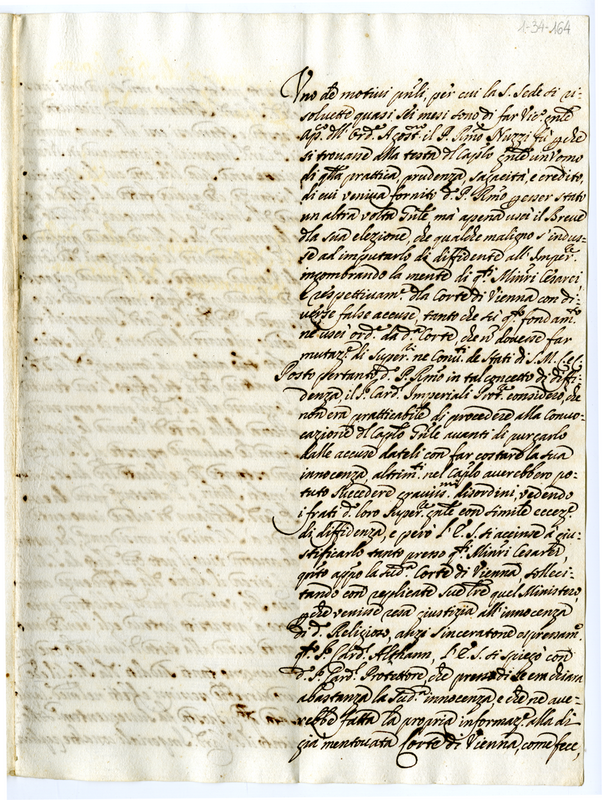 1-34-164
Uno de motivi pnli, per cui la S. Sede si ri-
solvette quasi sei mesi sono di far Vic.º gnle
ap. dll' Ord. Agost. il P. Rmo Nuzzi fù perche
si trovasse alla testa del Caplo gnle un Uomo
di qlla prattica, prudenza, sagacità, e credito,
di cui veniva fornito d. P. Rmo per esser stato
un altra volta Gnle, mà apena uscì il Breve
dlla sua elezione, che qualche maligno s'indus-
se ad imputarlo di diffidente all' Imper.
incombrando la mente di qti Minri Cesarei,
e respettivam. dlla Corte di Vienna con di-
verse false accuse, tanto che sù q. fondam.
ne uscì ord. da d. Corte, che n dovesse far
mutaz. di Super. ne Conv. de Stati di S. M. C. C.
Posto pertanto d. P. Rmo in tal concetto di diffi-
denza, il S. Card. Imperiali Prot. considerò, che
non era pratticabile di procedere alla Convo-
cazione del Caplo Gnle avanti di purgarlo
dalle accuse dateli con far costare la sua
innocenza, altrim. nel Caplo averebbero po-
tuto succedere graviss. disordini, vedendo
i frati il loro Super. gnle con simile eccez.
di diffidenza, e però l'E. S. si accinse à giu-
stificarlo tanto presso qti Minri Cesarei,
qnto appo la sud. Corte di Vienna, solleci-
tando con replicate sue lre quel Ministero,
perche venisse resa giustizia all' innocenza
di d. Religioso, anzi sinceratone espressam.
il S. Card. Althann, l'E. S. si spiegò con
d. S. Card. Protettore, che presso di se era chiara
abastanza la sud. innocenza, e che ne ave-
rebbe fatta la propria informaz. alla di
già mentovata Corte di Vienna, come fece,